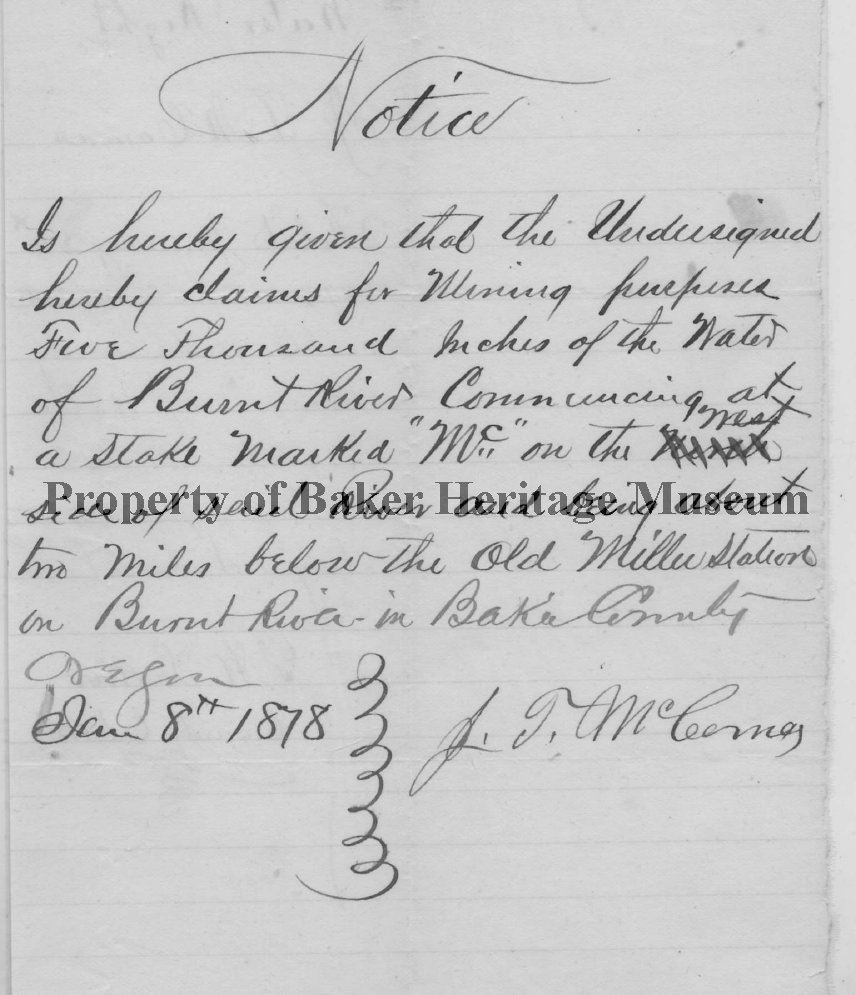 Notice
Is hereby given that the Undersigned
hereby claims for Mining purposes
Five Thousand Inches of the Water
of Burnt River Commencing at
a stake marked "Mc" on the West
side of said River and being about
Property of Baker Heritage Museum
two miles below the Old Miller Station
on Burnt River in Baker County
Oregon
Jan 8th 1878
J. T. McComas